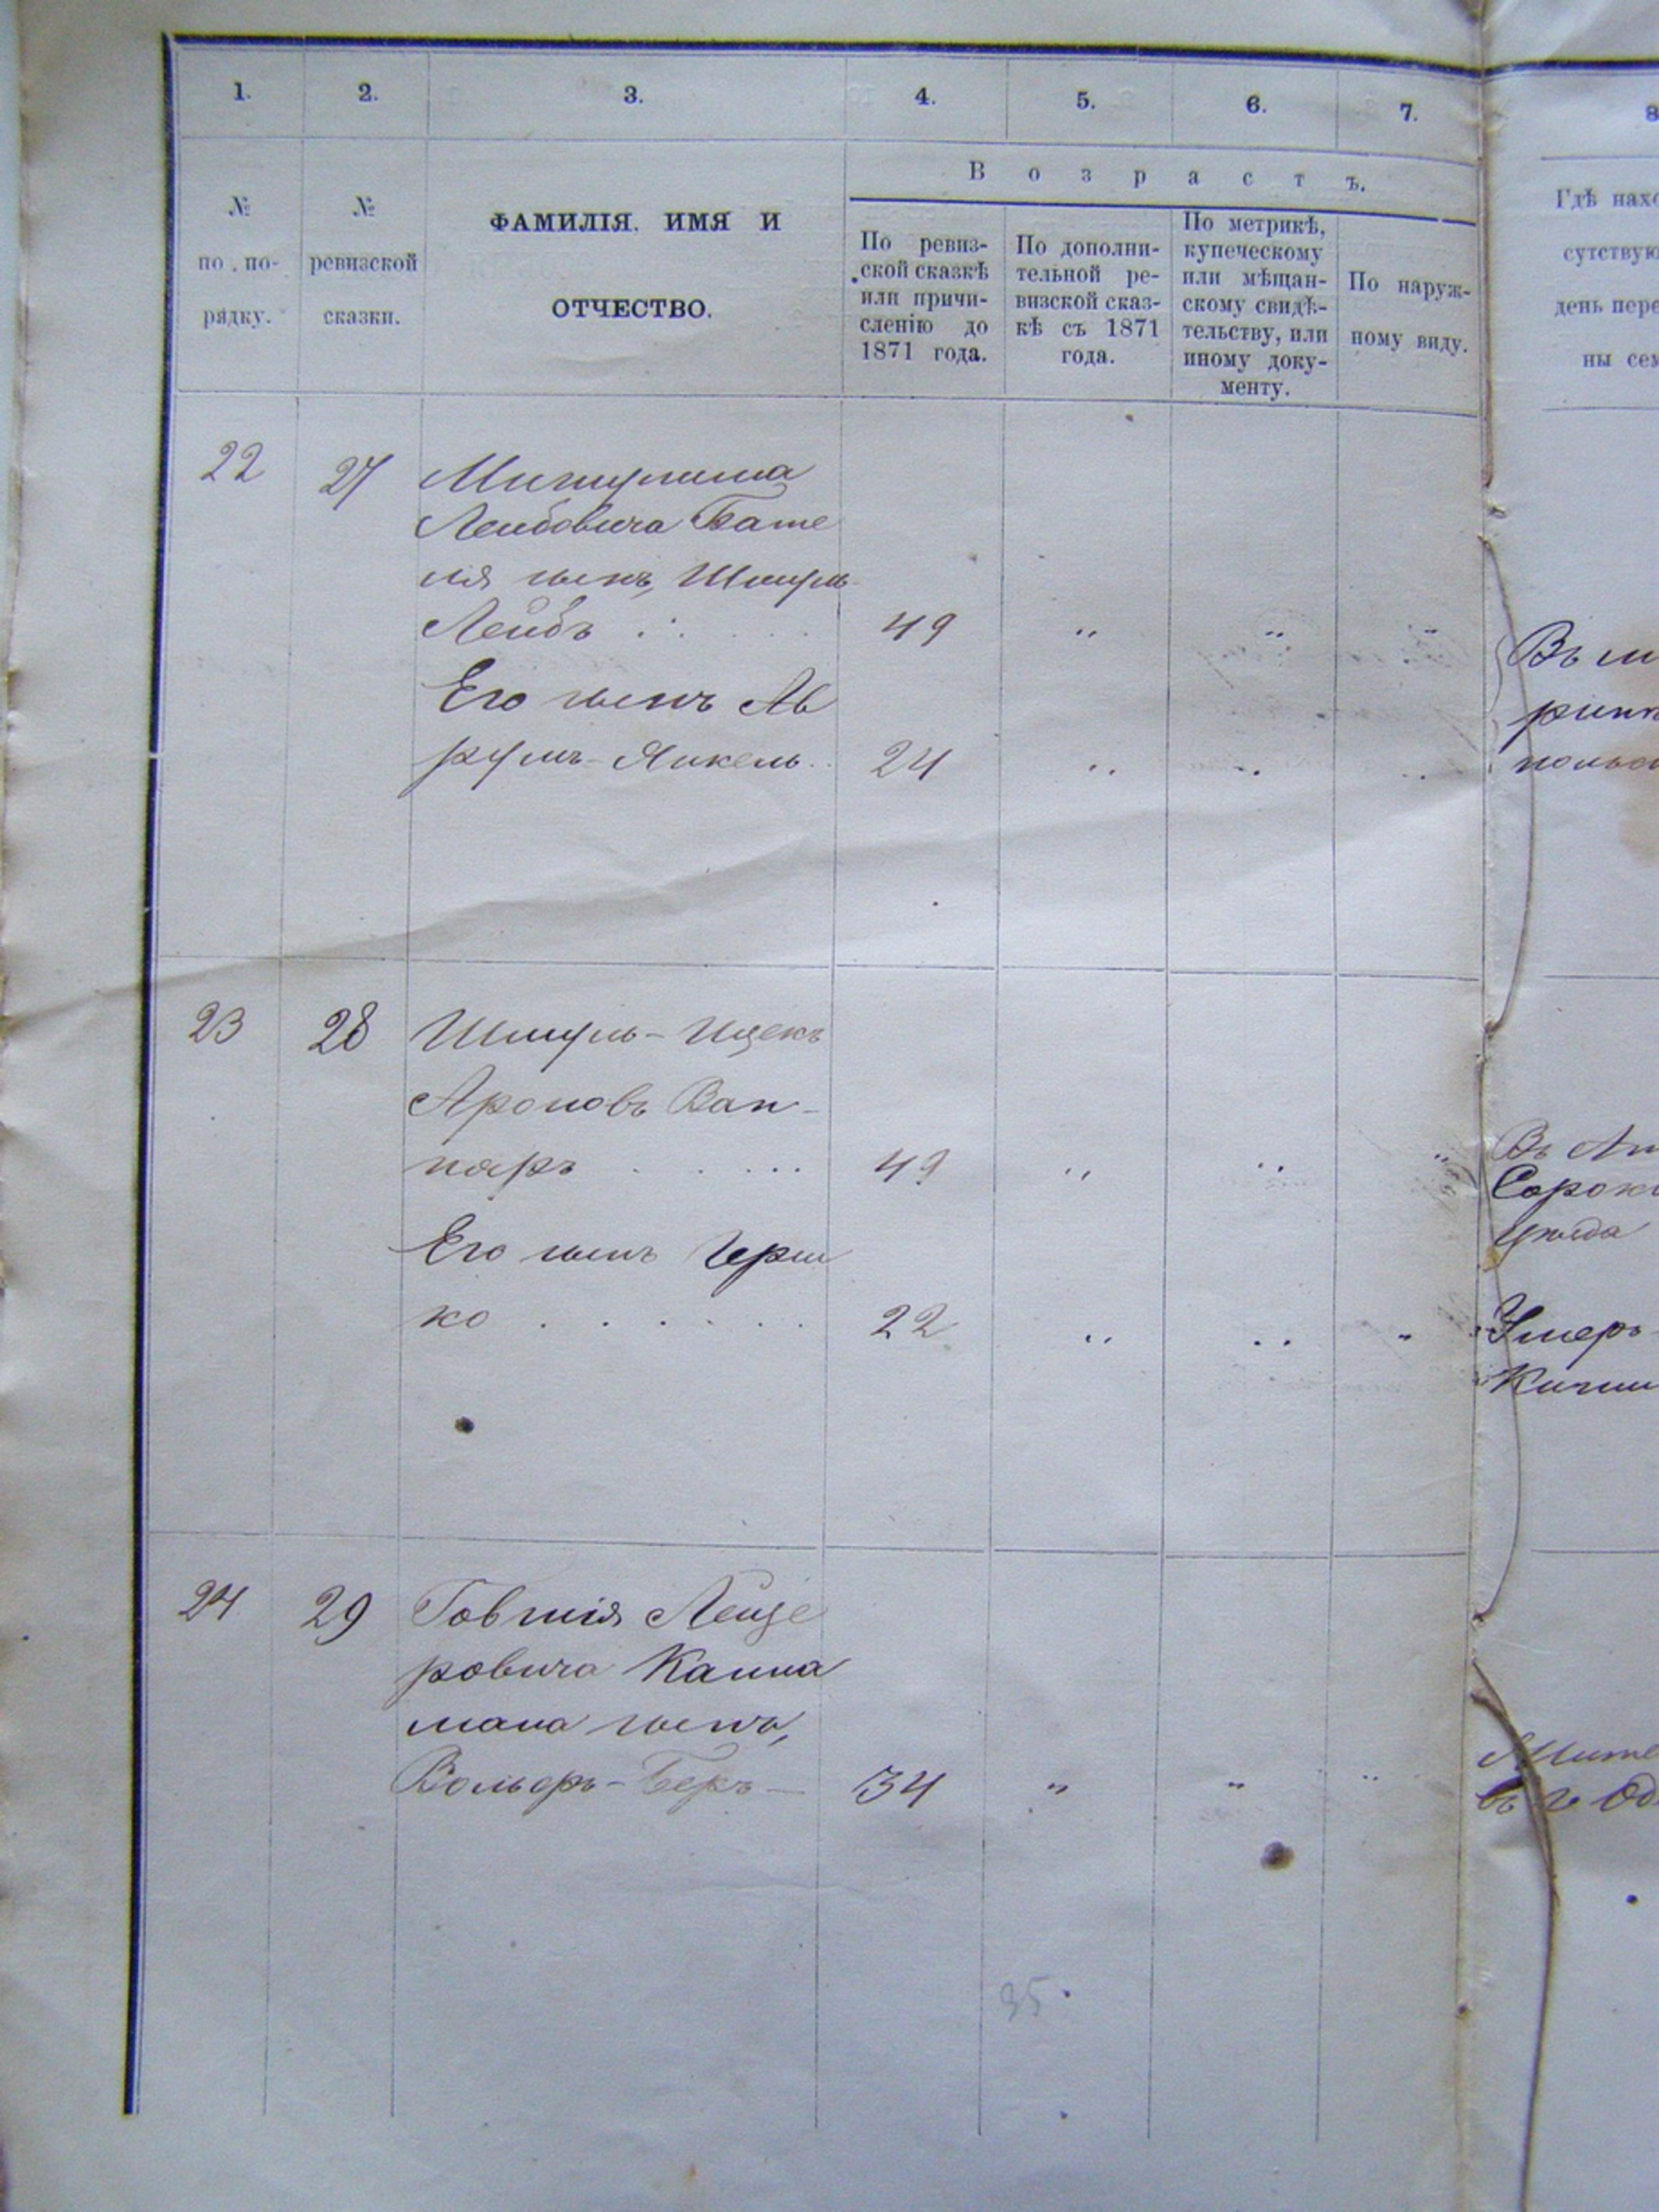 1. 2. 3. 4. 5. 6. 7. 8
№
по по-
рядку.
№
ревизской
сказки.
ФАМИЛІЯ, ИМЯ И
ОТЧЕСТВО.
Возрастъ.
По ревиз-
ской сказкѣ
или причи-
сленію до
1871 года.
По дополни-
тельной ре-
визской сказ-
кѣ съ 1871
года.
По метрикѣ,
купеческому
или мѣщан-
скому свидѣ-
тельству, или
иному доку-
менту.
По наруж-
ному виду.
Гдѣ нахо
сутствую
день пере
ны сем
22 27
Лейбовича Бате
ля сынъ, Шмуль
Лейбъ 49 " " "
Его сынъ Аб
румъ-Янкель 24 " " "
Въ м
ринк
польс
23 28 Шмуль-Ицекъ
Ароновъ Вап-
наръ 49 " " "
Его сынъ Герш
ко 22 " " "
Въ Ат
Сорок
уѣзда
Умеръ
Кишин
24 29 Говшія Лейзе
ровича Кайма
мана сынъ,
Вольфъ-Беръ 34 " " "
Жите
въ г Од
35